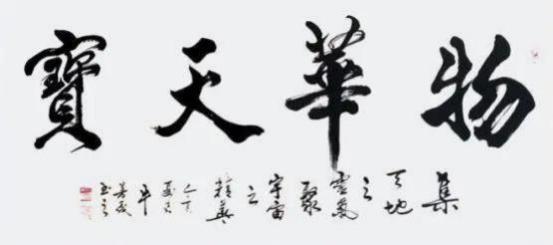 物華天寶
集天地之靈氣聚宇宙之精華